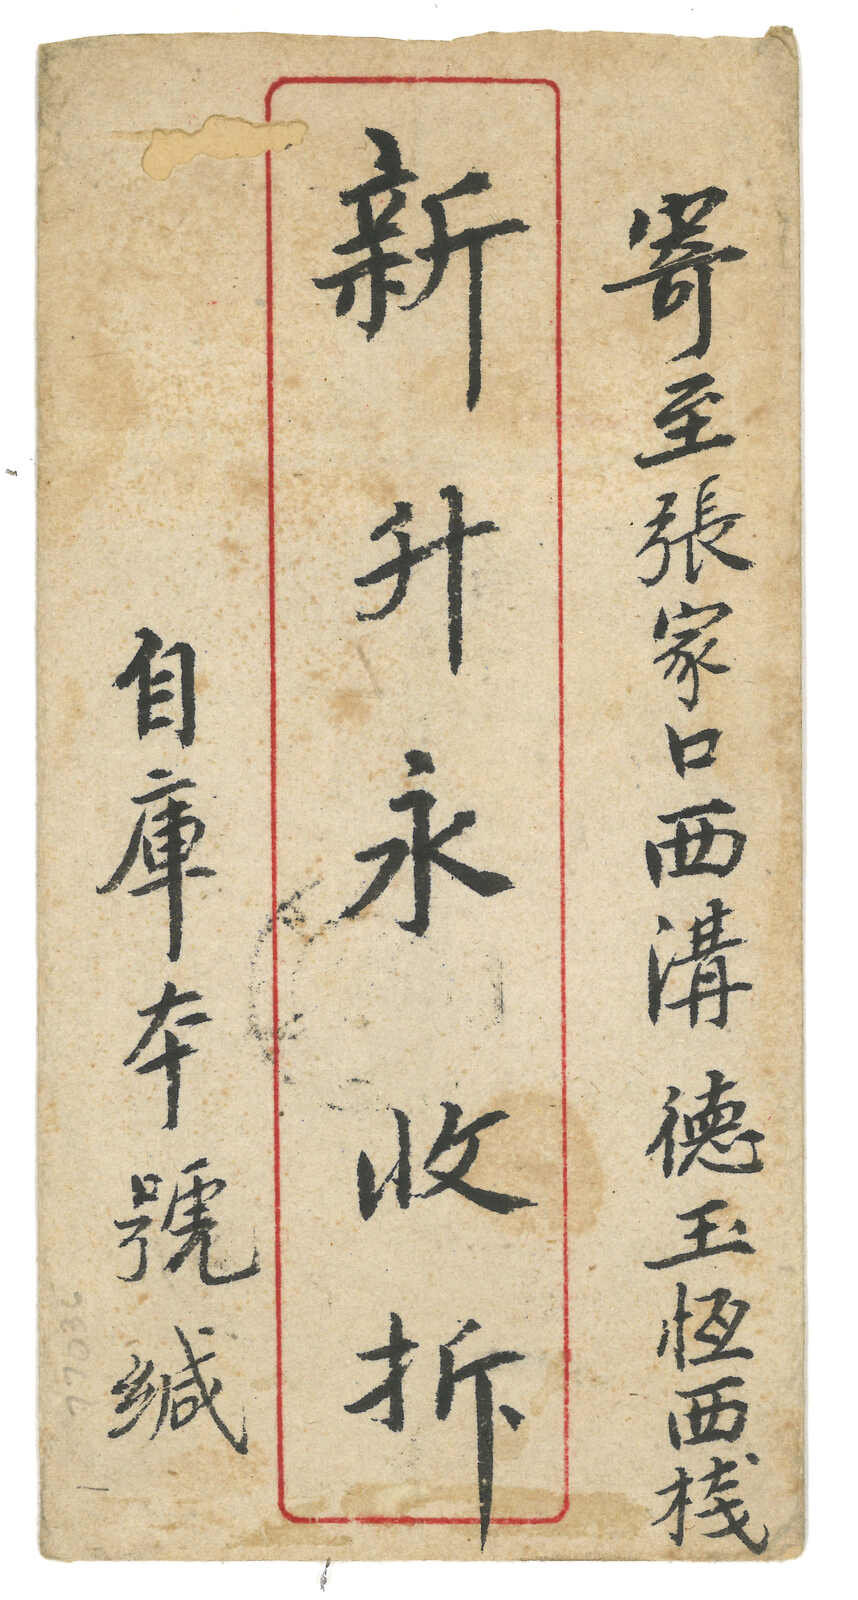 寄至張家口西溝德玉恆西栈
新升永收拆
自庫本號缄
77036